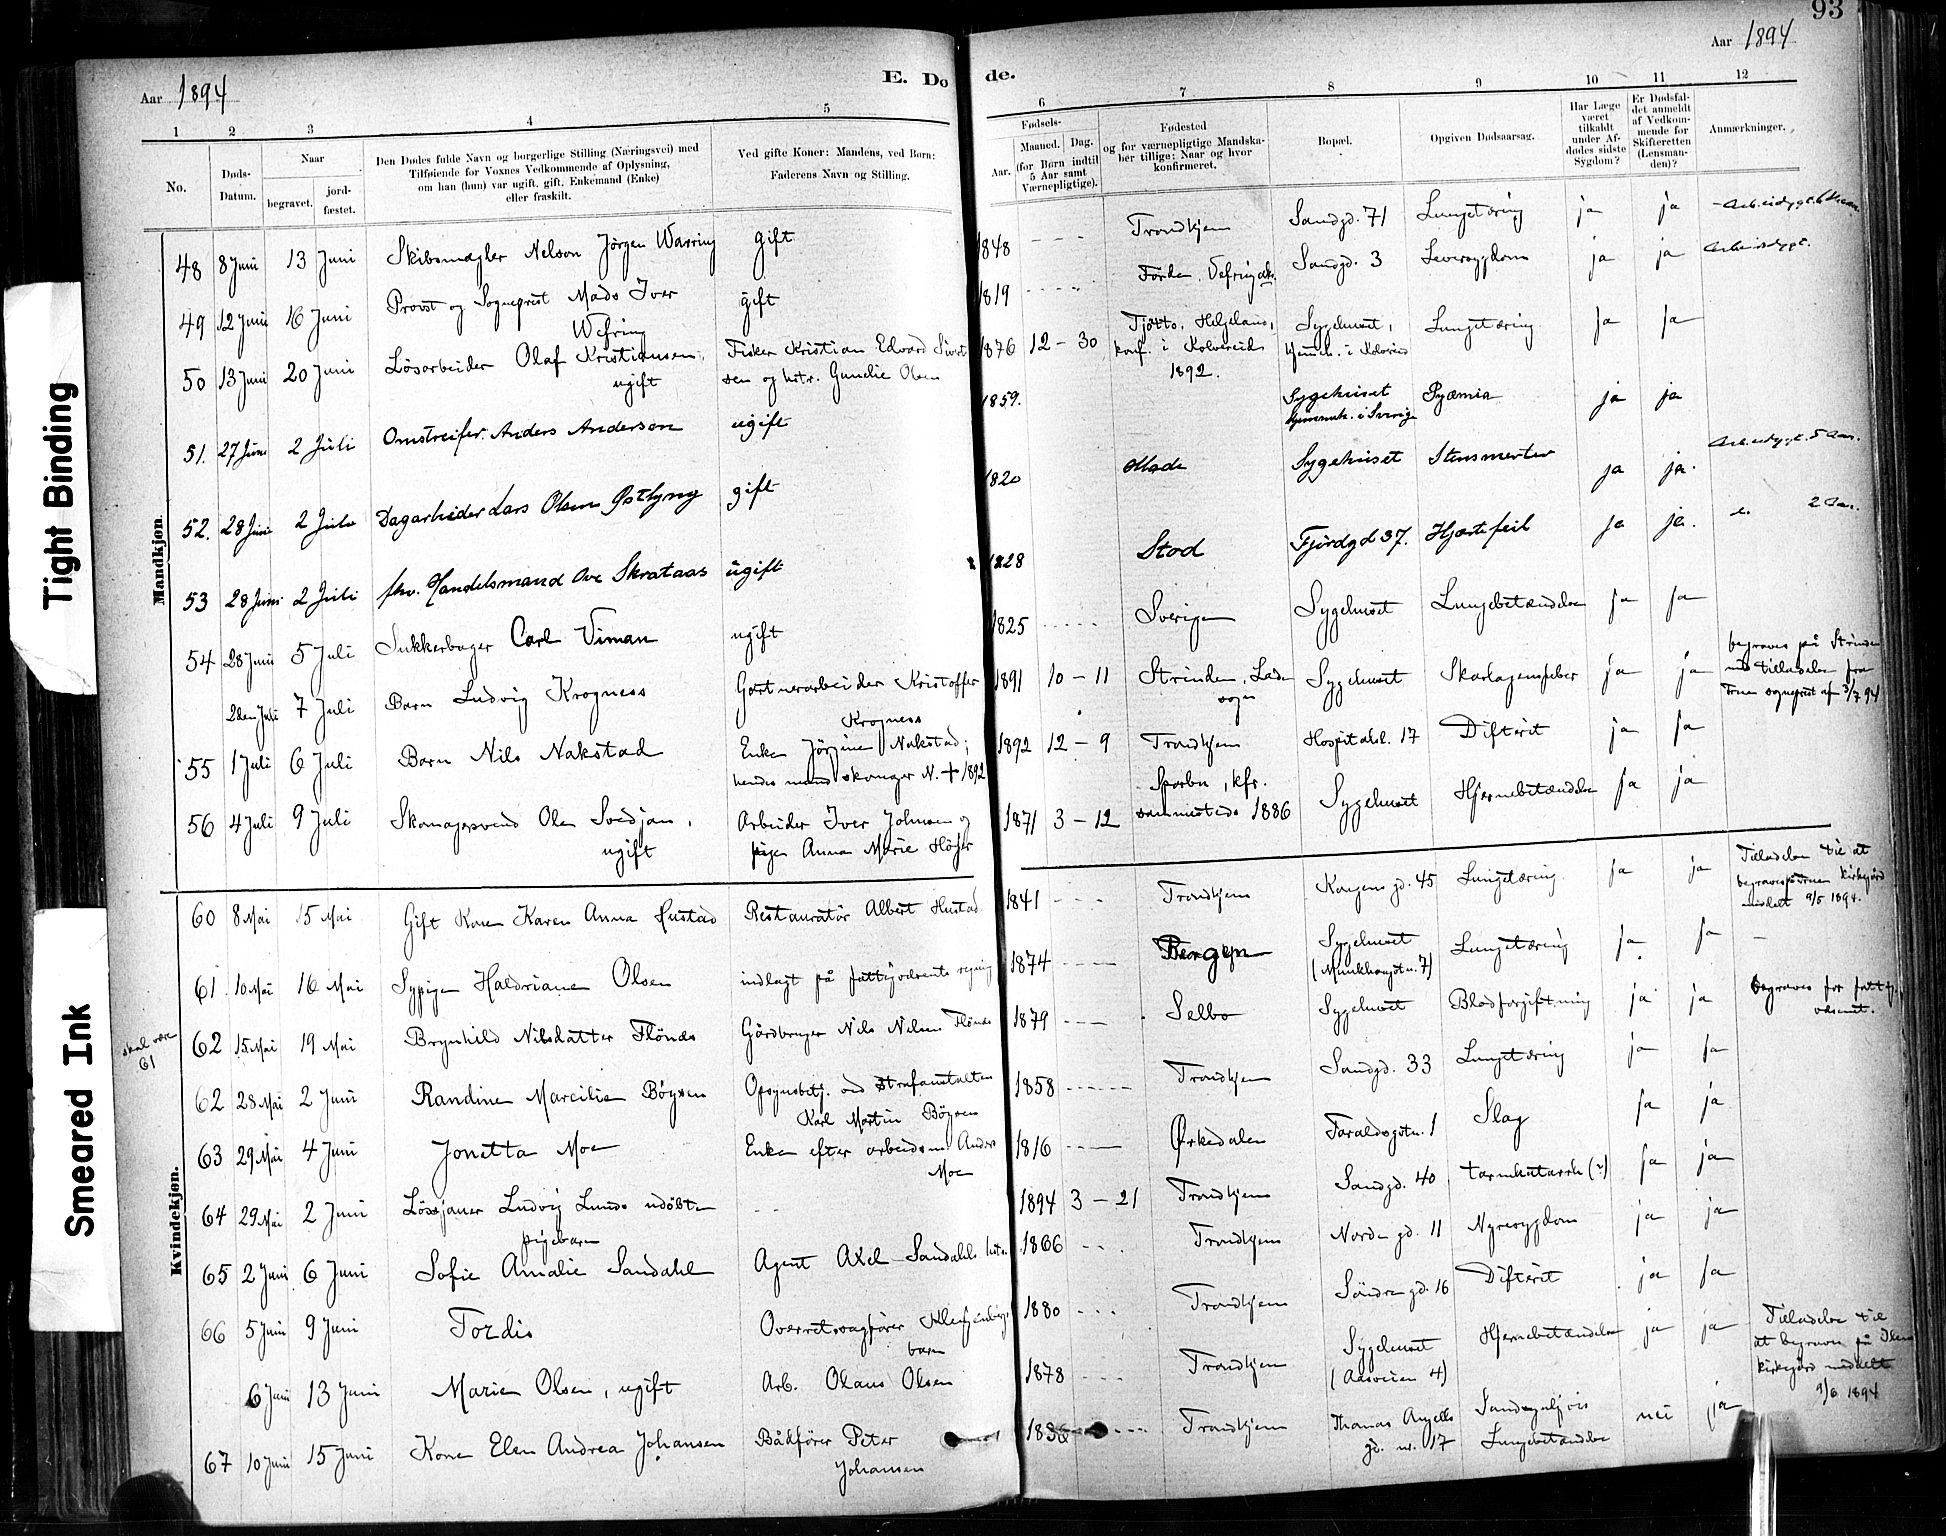 93
Aar 1894
Aar 1894
E. Do de.
1 2 3 4 5 6 7 8 9 10 11 12
No.
Døds-Datum.
Naar
begravet.
jord-fæstet.
Den Dødes fulde Navn og borgerlige Stilling (Næringsvei) med
Tilføiende for Voxnes Vedkommende af Oplysning,
om han (hun) var ugift, gift, Enkemand (Enke)
eller fraskilt.
Ved gifte Koner: Mandens, ved Børn:
Faderens Navn og Stilling.
Fødsels-
Aar.
Maaned. Dag.
(for Børn indtil
5 Aar samt
Værnepligtige).
Fødested
og for værnepligtige Mandska-
ber tillige: Naar og hvor
konfirmeret.
Bopæl.
Opgiven Dødsaarsag.
Har Læge
været
tilkaldt
under Af-
dødes sidste
Sygdom?
Er Dødsfal-
det anmeldt
af Vedkom-
mende for
Skifteretten
(Lensman-
den)?
Anmærkninger.
Tight Binding
Smeared Ink
Mandkjøn.
48 8 Juni 13 Juni Skibsmægler Nelson Jörgen Warring gift 1848 Trondhjem Sandgd. 71 Lungetæring ja ja
49 12 Juni 16 Juni Provst og Sogneprest Mads Iver gift 1819 Förde Sandgd. 3 Leversygdom ja ja
Wefring
50 13 Juni 20 Juni Lösarbeider Olaf Kristiansen, Fisker Kristian Edvard 1876 12 - 30 Tjötta, Helgeland, Sygehuset, Lungetæring ja ja
ugift sen og hstr. Gundie Olsen konf. i Kolvereid hjemh. i Kolvereid
1892.
51. 27 Juni 2 Juli Omstreifer Anders Anderson ugift 1859. Sygehuset Pyæmia ja ja
hjemmeh. i Sverige
52. 28 Juni 2 Juli Dagarbeider Lars Olsen Östlyng gift 1820 Sygehuset ja ja. 5 Aar.
53 28 Juni 2 Juli fhv. Handelsmand Ove Skrataas ugift 1828 Stod Fjordgd 37. Hjertefeil ja ja. 2 Aar.
54 28 Juni 5 Juli Sukkerbager Carl Viman ugift 1825 Sverige Sygehuset Lungebetændelse ja ja
2den Juli 7 Juli Barn Ludvig Krogness Gartnerarbeider Kristoffer 1891 10 - 11 Strinden, Lade Sygehuset Skarlagensfeber ja ja begraves på Strinden
Krogness sogn med tilladelse fra
Frue sogneprest af 3/7 94
55 1 Juli 6 Juli Barn Nils Nakstad Enke Jörgine Nakstad; 1892 12 - 9 Trondhjem Hospitalsl. 17 Difterit ja ja
hendes mand skomager N. + 1892
56 4 Juli 9 Juli Skomagersvend Ole Svedjan, Arbeider Iver Johnsen og 1871 3 - 12 Sparbu, kfr. Sygehuset Hjernebetændelse ja ja
ugift pige Anna Marie sammesteds 1886
Kvindekjøn.
60 8 Mai 15 Mai Gift Kone Karen Anna Hustad Restauratör Albert Hustad 1841 Trondhjem Kongens gd. 45 Lungetæring ja ja Tilladelse til at
begraves kirkegård
meddelt 9/5 1894.
61 10 Mai 16 Mai Sypige Haldriane Olsen indlagt på fattigvæsenets regning 1874 Bergen Sygehuset Lungetæring ja ja
(Munkhaugstu. 7)
skal være
61
62 15 Mai 19 Mai Brynhild Nilsdatter Flönes Gårdbruger Nils Nilsen Flönes 1879 Selbo Sygehuset Blodforgiftning ja ja begraves for fattig-
væsenet.
62 28 Mai 2 Juni Randine Marcilie Böysen Opsynsbetj. ved Strafanstalten 1858 Trondhjem Sandgd. 33 Lungetæring ja ja
Karl Martin Böysen
63 29 Mai 4 Juni Jonetta Moe Enke efter arbeidsm. Anders 1816 Örkedalen Taraldsgstu. 1 Slag ja ja
Moe
64 29 Mai 2 Juni Ludvig Lunds udöbte 1894 3 - 21 Trondhjem Sandgd. 40 tarmkatarrh (?) ja ja
pigebarn
65 2 Juni 6 Juni Sofie Amalie Sandahl Agent Axel Sandahls hstr. 1866 Trondhjem Nordre gd. 11 Nyresygdom ja ja
66 5 Juni 9 Juni Tordis Overretssagförer 1880 Trondhjem Söndre gd. 16 Difterit ja ja
barn
6 Juni 13 Juni Marie Olsen, ugift Arb. Olaus Olsen 1878 Trondhjem Sygehuset Hjernebetændelse ja ja Tilladelse til
(Aasveien 4) at begraves på Ilens
kirkegård meddelt
9/6 1894
67 10 Juni 15 Juni Kone Elen Andrea Johansen Bådförer Peter Trondhjem Thomas Angells nei ja
Johansen gd. nr. 17 Lungebetændelse